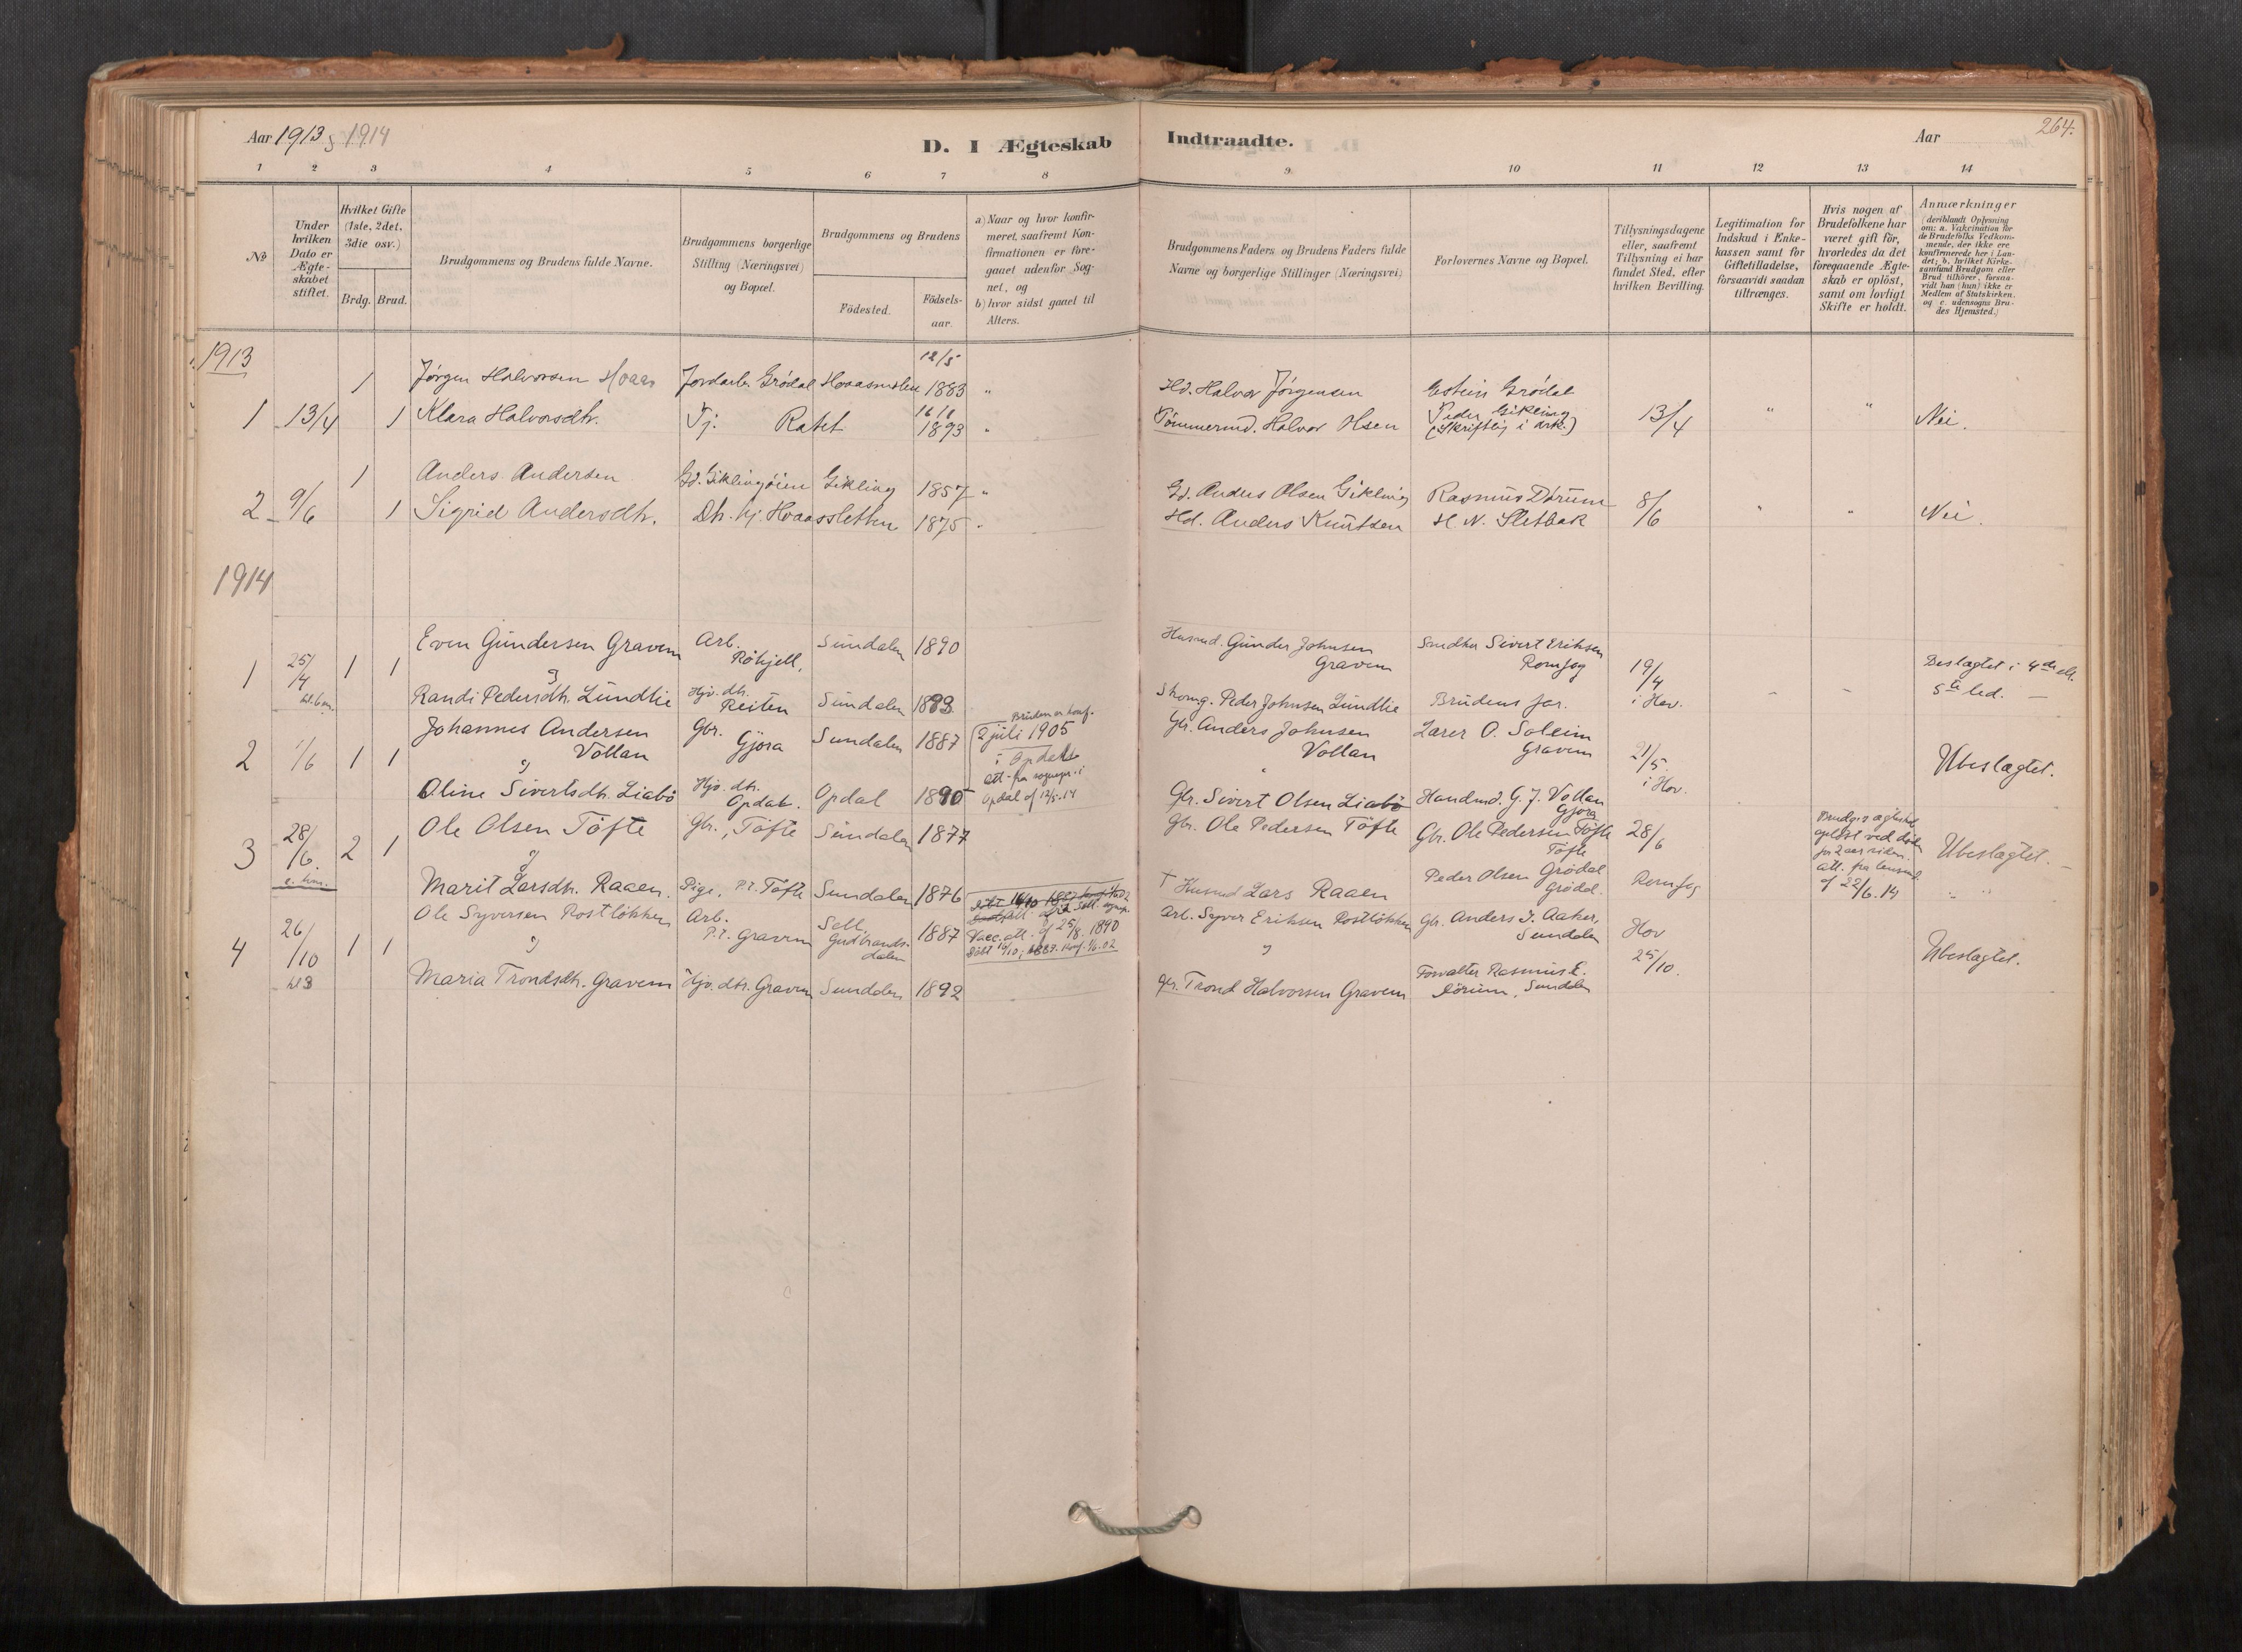 Aar 1913 & 1914
D. I Ægteskab Indtraadte.
Aar
264.
1 2 3 4 5 6 7 8 9 10 11 12 13 14
No
Under hvilken Dato er Ægteskabet stiftet.
Hvilket Gifte (1ste, 2det, 3die osv.)
Brdg. Brud.
Brudgommens og Brudens fulde Navne.
Brudgommens borgerlige Stilling (Næringsvei) og Bopæl.
Brudgommens og Brudens
Födested.
Födselsaar.
a) Naar og hvor konfirmeret, saafremt Konfirmationen er foregaaet udenfor Sognet, og
b) hvor sidst gaaet til Alters.
Brudgommens Faders og Brudens Faders fulde Navne og borgerlige Stillinger (Næringsvei)
Forlovernes Navne og Bopæl.
Tillysningsdagene eller, saafremt Tillysning ei har fundet Sted, efter hvilken Bevilling.
Legitimation for Indskud i Enkekassen samt for Giftetilladelse, forsaavidt saadan tiltrænges.
Hvis nogen af Brudefolkene har været gift för, hvorledes da det foregaaende Ægteskab er oplöst, samt om lovligt Skifte er holdt.
Anmærkninger (deriblandt Oplysning om: a. Vakcination for de Brudefolks Vedkommende, der ikke ere konfirmerede her i Landet; b. hvilket Kirkesamfund Brudgom eller Brud tilhörer, forsaavidt han (hun) ikke er Medlem af Statskirken, og c. udensogns Brudes Hjemsted.)
1913
1 Jörgen Halvorsen Hoaas Jordarb. Grödal 12/5 1883 " Hd. Halvor Jörgensen Estein Grödal
1 13/4 1 Klara Halvorsdtr. Tj. 1893 " Tömmermd. Halvor Hsen Peder Gikling (Skriftlig i Ark.) 13/4 " " Nei.
1 Anders Andersen Gd. Giklingöien Gikling 1857 " Gd. Anders Olsen Gikling Rasmus Dörum
2 9/6 1 Sigrid Andersdtr. Dtr. hj. Hoaassletten 1875 " Hd. Anders Knutsen H. N. Sletbak 8/6 " " Nei.
1914
Even Gundersen Gravem Arb. Röhjell, Sundalen 1890 Husmd. Gunder Johnsen Gravem Sivert Eriksen Romfog
1 25/4 1 1 & 19/4 i Hov. - - Beslægtet i 4de el. 5te led. -
Randi Pedersdtr. Lundlie Hjv. dtr. Reiten Sundalen Skomg. Peder Johnsen Lundlie Brudens far.
Johannes Andersen Vollan Gbr. Gjöra Sundalen 1887 Bruden er konf. 2 juli 1905 i Opdal att. fra sognepr. i Opdal af 12/5.14 Gbr. Anders Johnsen Vollan Lærer O. Soleim Gravem
2 1/6 1 1 & 21/5. i Hov. Ubeslægtet.
Oline Sivertsdtr. Liabö Hjv. dtr. Opdal. Opdal 1890 Gbr. Sivert Olsen Liabö Handmd. G. J. Vollan Gjöra
Ole Olsen Töfte Gbr., Töfte Sundalen 1877 Gbr. Ole Pedersen Töfte Gbr. Ole Pedersen Töfte Töfte 28/6
3 28/6. 2 1 & Brudg.s ægteskab oplöst ved döden for 2 aar siden. att. fra lensmd. af 22/6.14 Ubeslægtet. -
Marit Larsdtr. Raaen. Pige, P.t. Töfte Sundalen 1876 † Husmd Lars Raaen Peder Olsen Grödal Grödal. Romfog
Ole Syversen Rostlökken Arb. P.t. Gravem Sell, Gudbrandsdalen 1887 Vacc. att. af 25/8. 1890 Döbt 16/10, 1887. Konf. Arb. Syver Eriksen Rostlökken Gbr. Anders J. Aaker, Sundalen Hov 25/10.
4 26/10 kl 3 1 1 & Ubeslægtet.
Maria Trondsdtr. Gravem Hjv. dtr. Gravem Sundalen 1892 Gbr. Trond Halvorsen Gravem Forvalter Rasmus E. Dörum, Sundalen